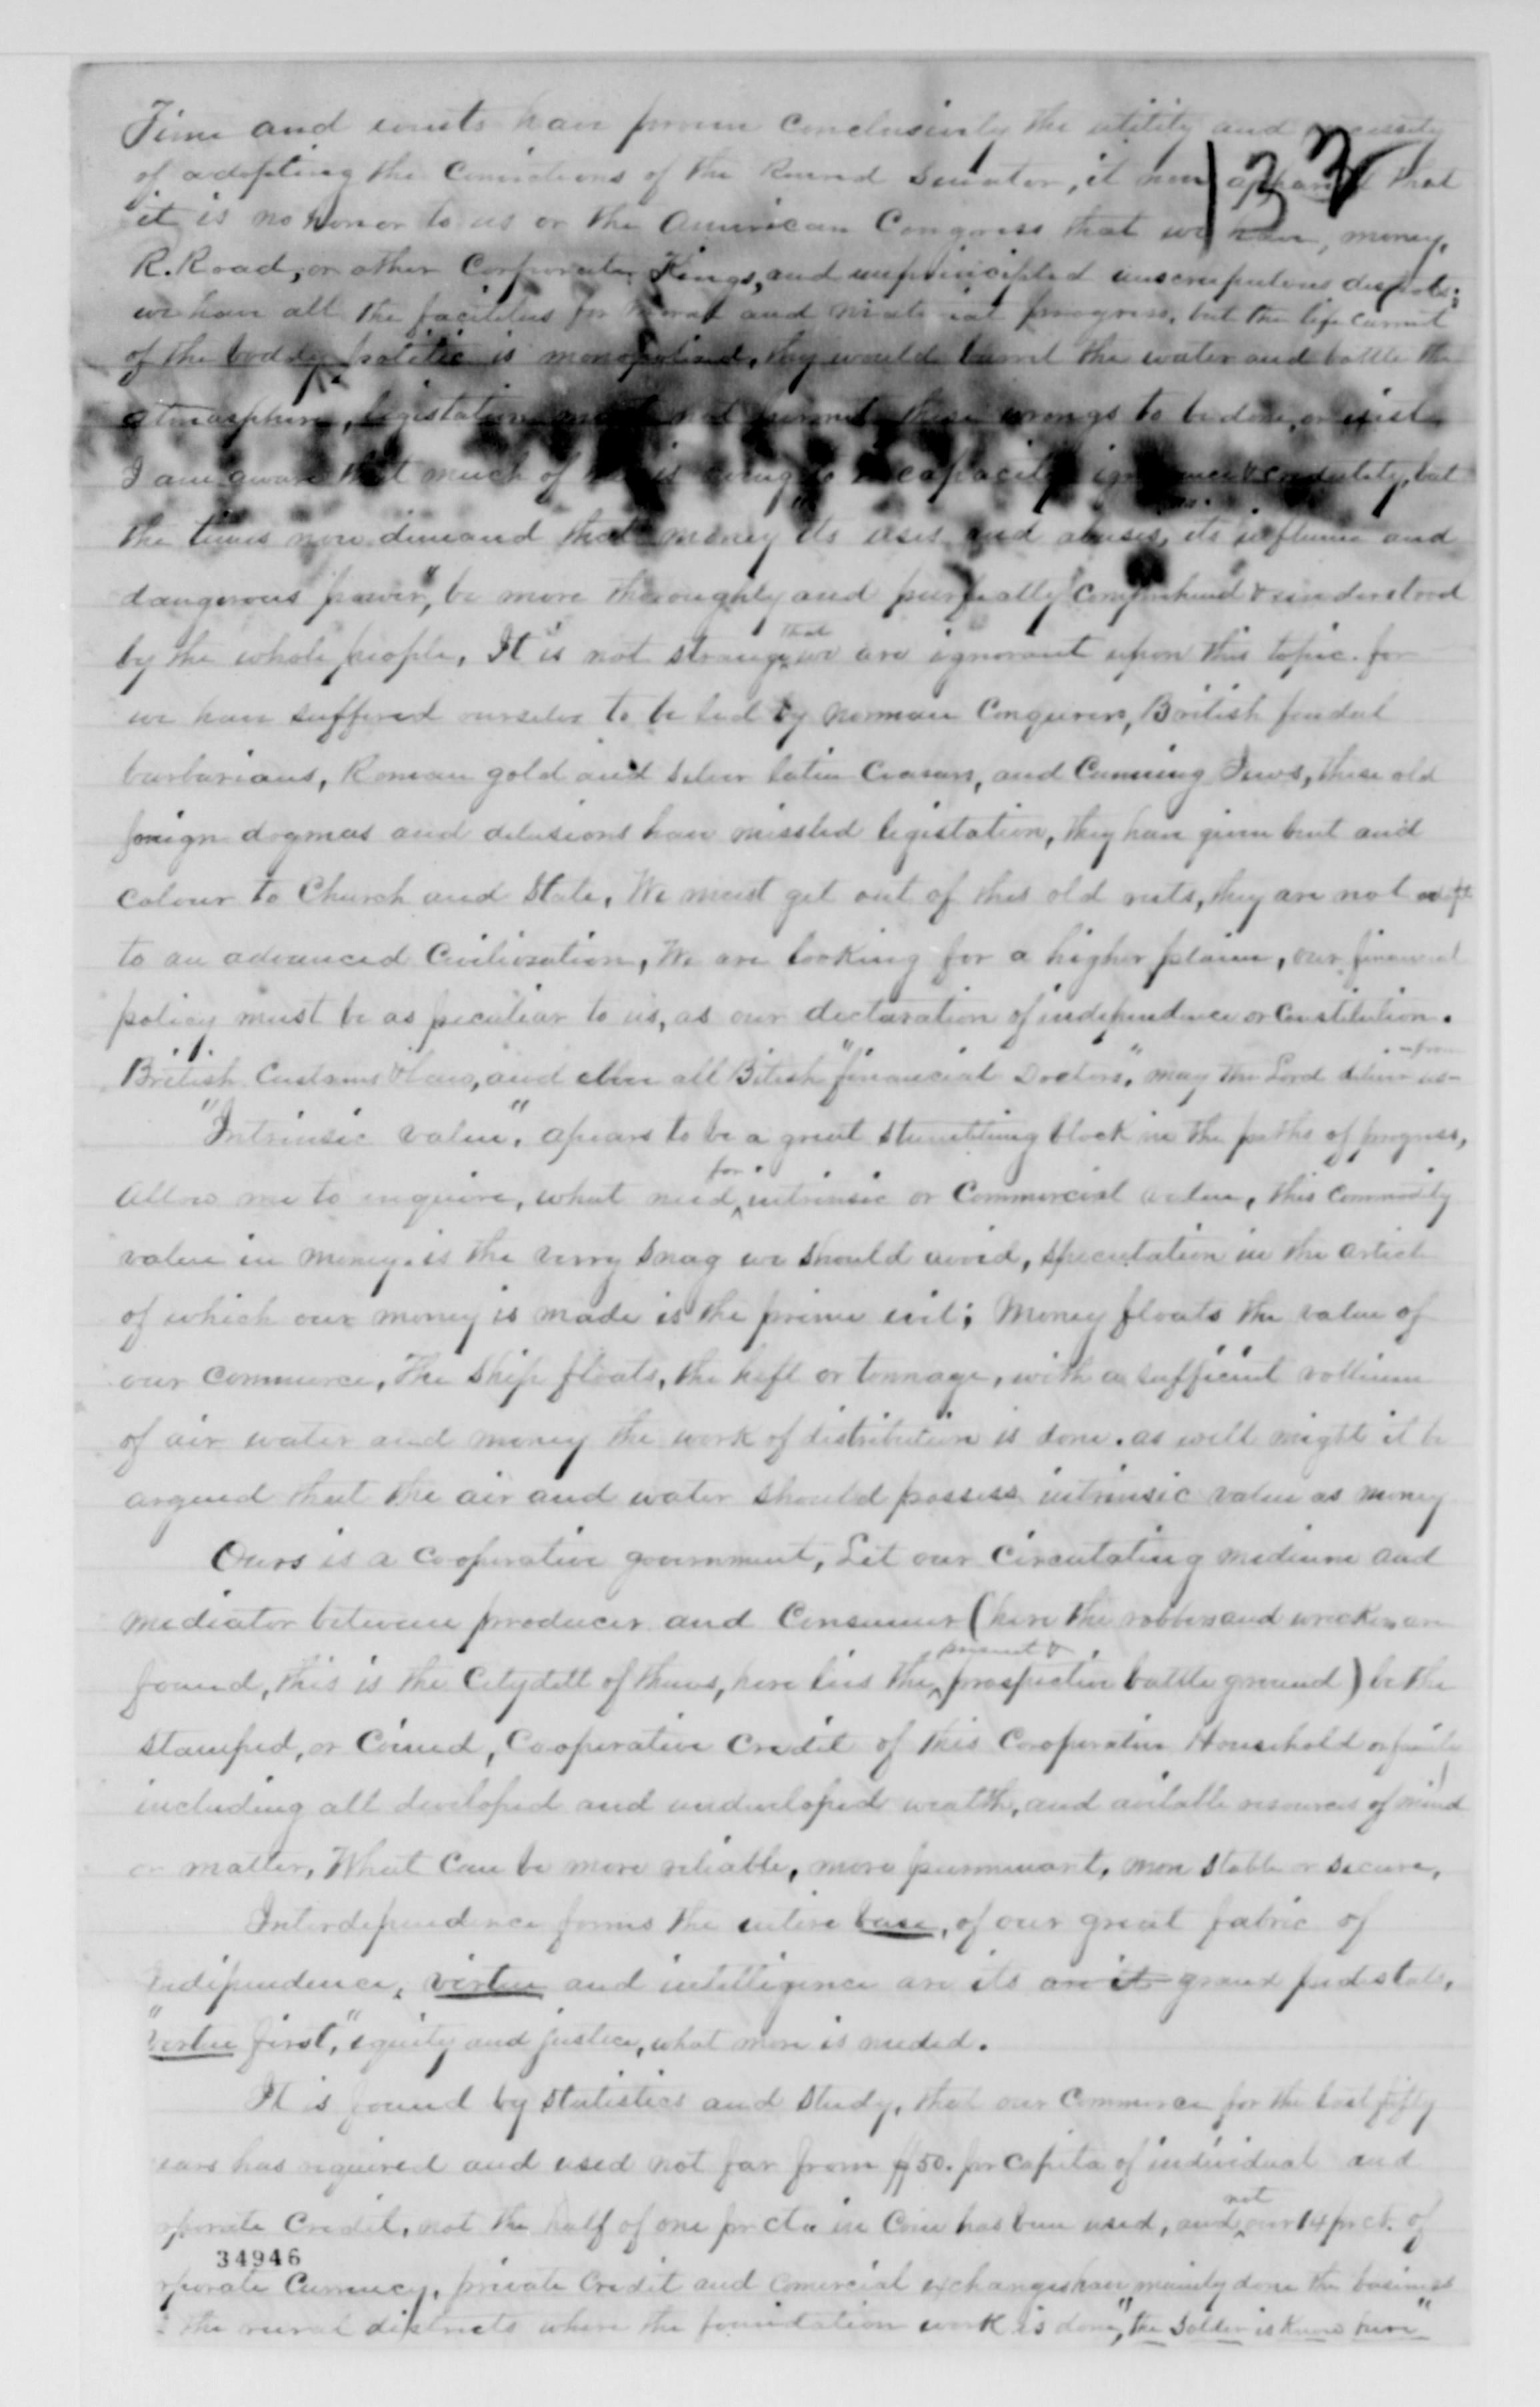 Time and events have proven conclusively the utility and necessity
of adopting the convictions of the Revered Senator, it now apparent that
133
it is no honor to us or the American Congress that we have, money,
R. Road, or other Corporate Kings, and unprincipled unscrupulous despots;
we have all the facilities for moral and material progress, but the life current
of the boddy politic is monopolised, they would barrel the water and bottle the
atmosphere, legistation must not permit these wrongs to be done, or exist
I am aware that much of this is owing to incapacity ignorance & credulity, but
the times now demand that "money its uses and abuses, its influence and
dangerous power", be more thoroughly and perfectly comprehend & understood
by the whole people, It is not strange that we are ignorant upon this topic. for
we have suffered ourselves to be led by Norman Conquerers, British feudal
barbarians, Roman gold and silver latin Ceasars, and Cunning Jews, these old
foreign dogmas and delusions have missled legistation, they have given bent and
colour to Church and State, We must get out of this old ruts, they are not
to an advanced Civilization, We are looking for a higher plain, our financial
policy must be as peculiar to us, as our declaration of independence or Constitution.
British Customs & laws, and all Bitish "financial Doctors", may the Lord deliver us from
"Intrinsic value", apears to be a great stumbling block in the paths of progress,
Allow me to inquire, what need for intrinsic or Commercial value, this commodity
value in money. is the verry snag we should avoid, speculation in the articl
of which our money is made is the prime evil; Money floats the value of
our commerce, The ship floats, the heft or tonnage, with a sufficient vollume
of air water and money the work of distribution is done. as well might it be
argued that the air and water should possess intrinsic value as money
Ours is a cooperative government, Let our circulating medium and
mediator between producer and Consumer (here the robbers and wreckers are
found, this is the Citydell of thieves, here lies the present & prospective battle ground) be the
stamped, or Coined, Cooperative Credit of this Cooperative Household or family
including all developed and undeveloped wealth, and avilable resources of mind
or matter, What can be more reliable, more permmanant, more stable or secure,
Interdependence forms the entire base, of our great fabric of
Independence, virtue and intelligence are its are it grand pedistals,
"Virtue first," equity and justice, what more is needed.
It is found by statistics and study, that our Commerce for the last fifty
ears has required and used not far from $50. per capita of individual and
rporate Credit, not the half of one pr ct in Coin has been used, and not over 14 pr ct. of
34946
rporate Currency, private Credit and Comercial exchanges have mainly done the business
the rural districts where the foundation work is done, "the Solder is Known here"